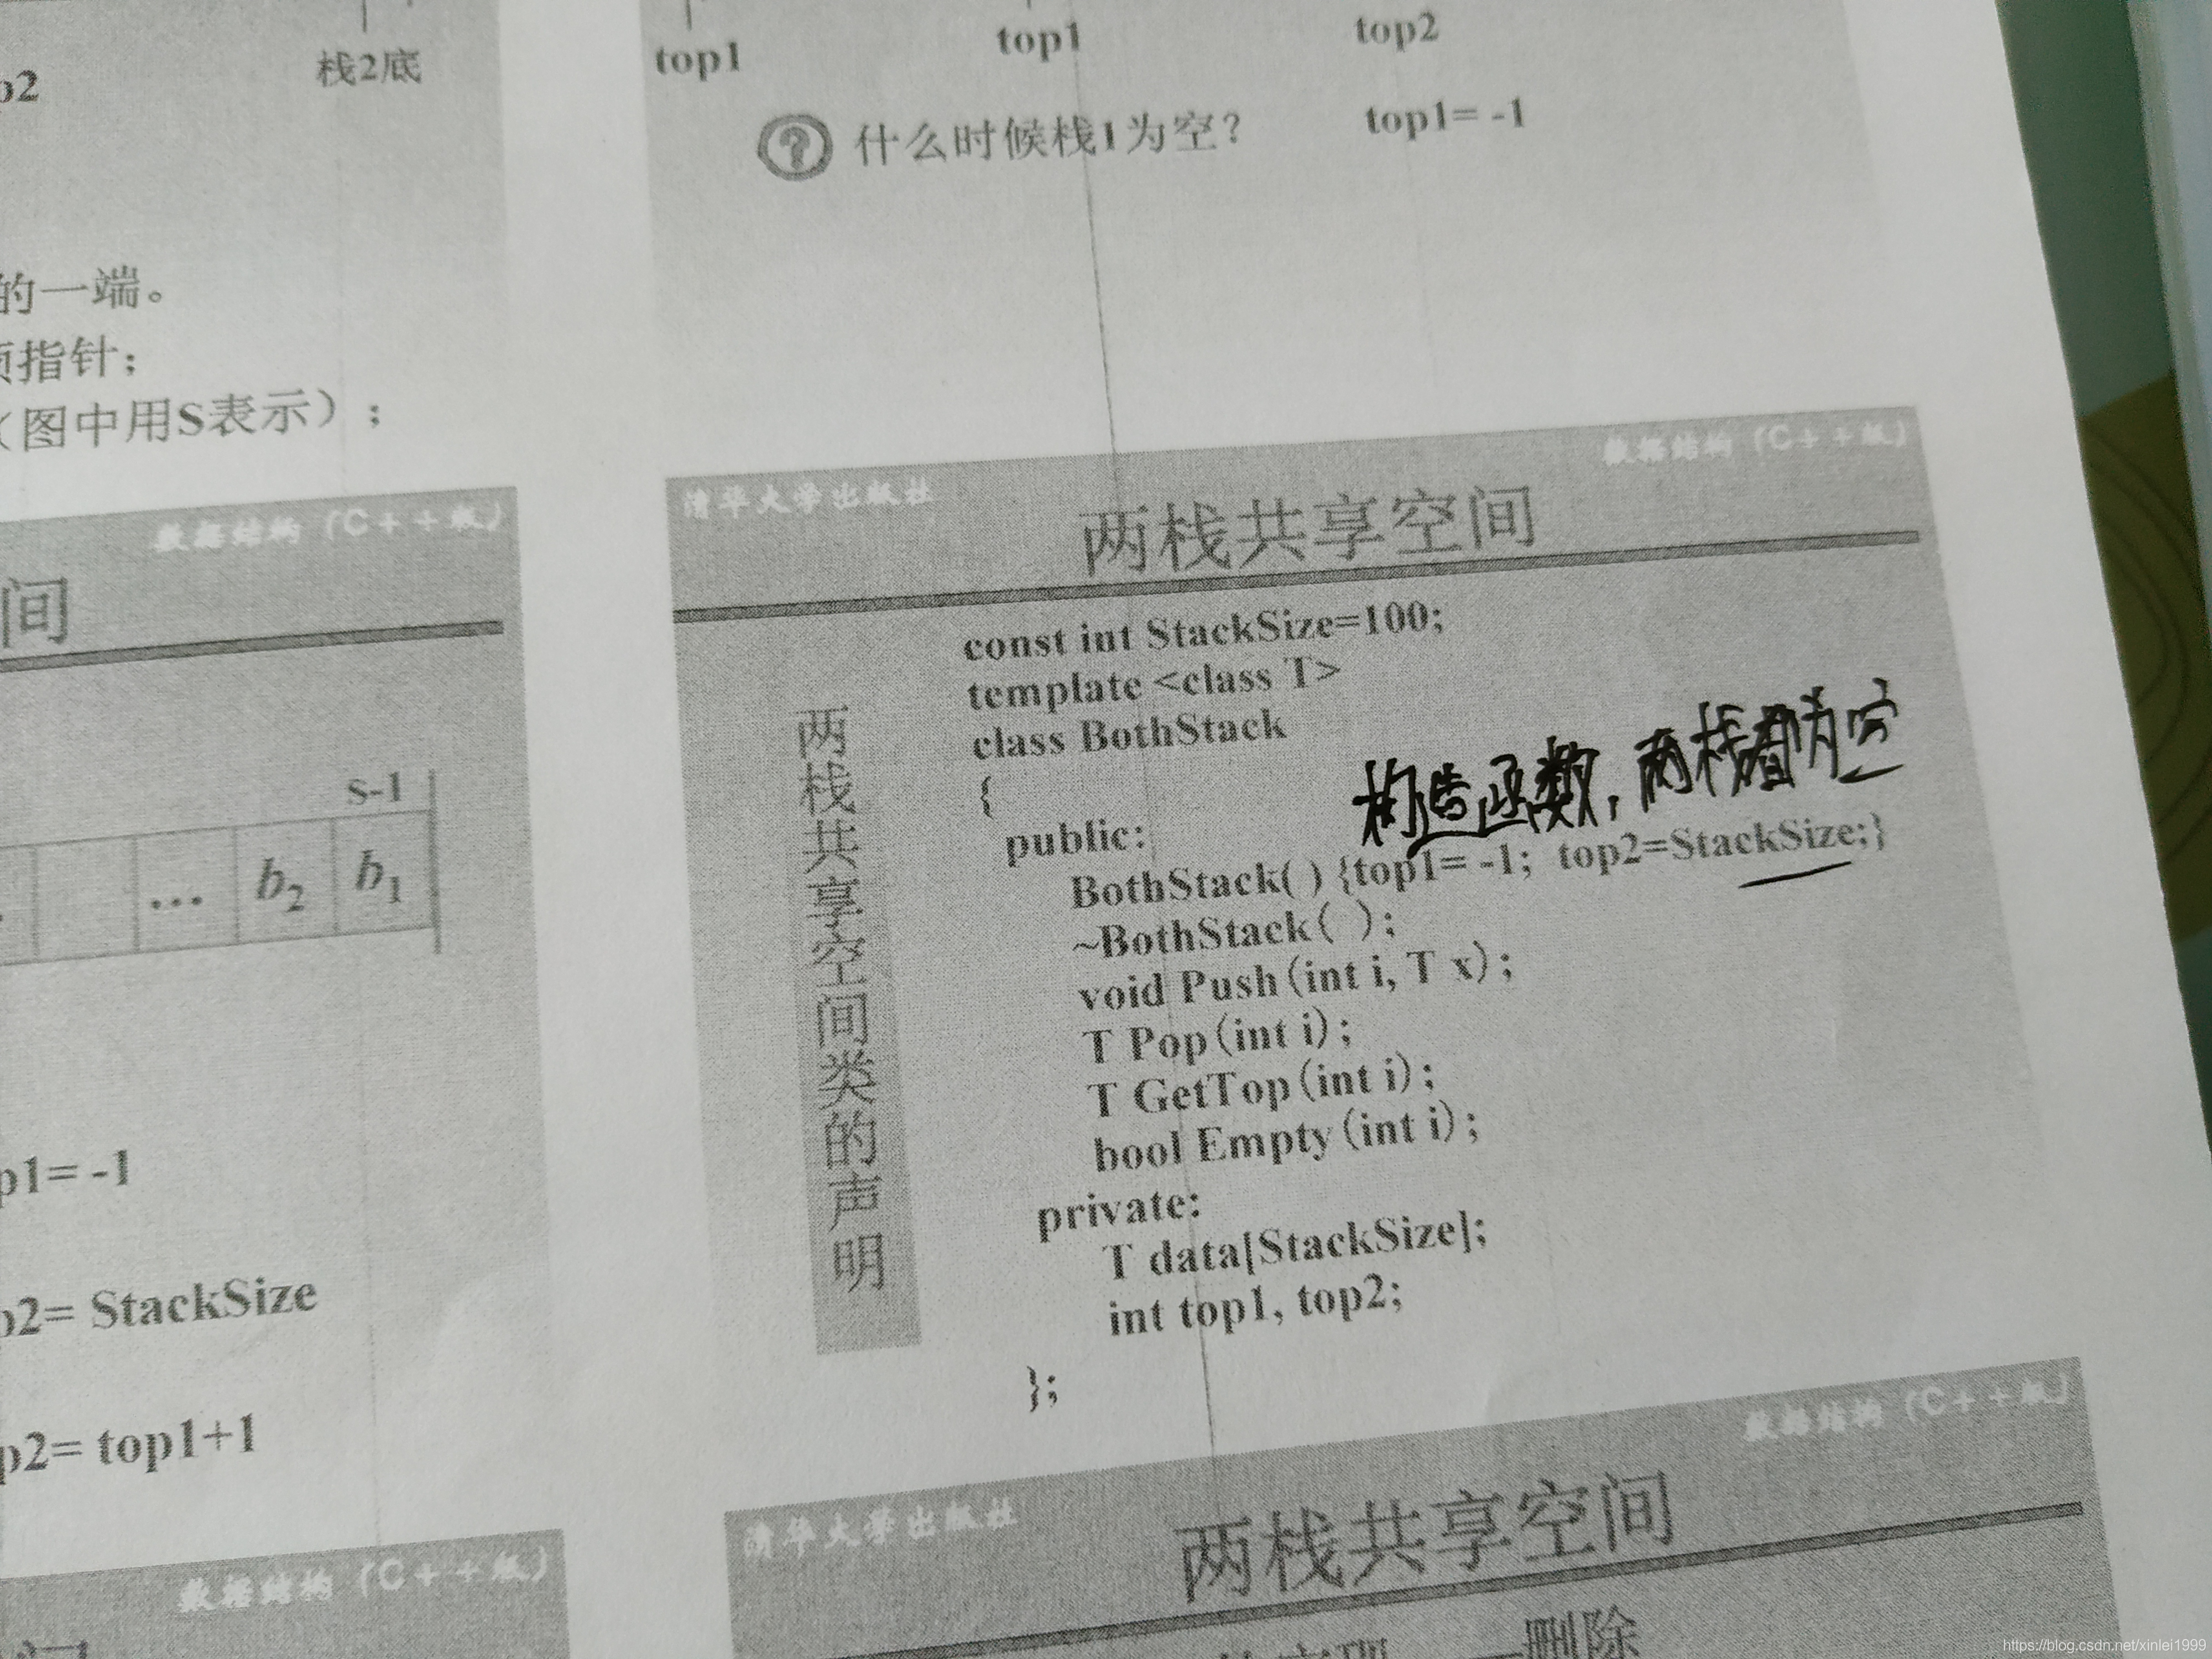 栈2底
p2
的一端。
指针；
（图中用S表示）；
数据结构（C++版）
间
s-1
... b2 b1
p1= -1
p2= StackSize
p2= top1+1
数据结构（C++版）
top1 top1 top2
? 什么时候栈1为空？ top1= -1
清华大学出版社 数据结构（C++版）
两栈共享空间
两栈共享空间类的声明
const int StackSize=100;
template <class T>
class BothStack
{
构造函数，两栈都为空
public:
BothStack( ) {top1= -1; top2=StackSize;}
~BothStack( );
void Push(int i, T x);
T Pop(int i);
T GetTop(int i);
bool Empty(int i);
private:
T data[StackSize];
int top1, top2;
};
清华大学出版社 数据结构（C++版）
两栈共享空间
删除
https://blog.csdn.net/xinlei1999